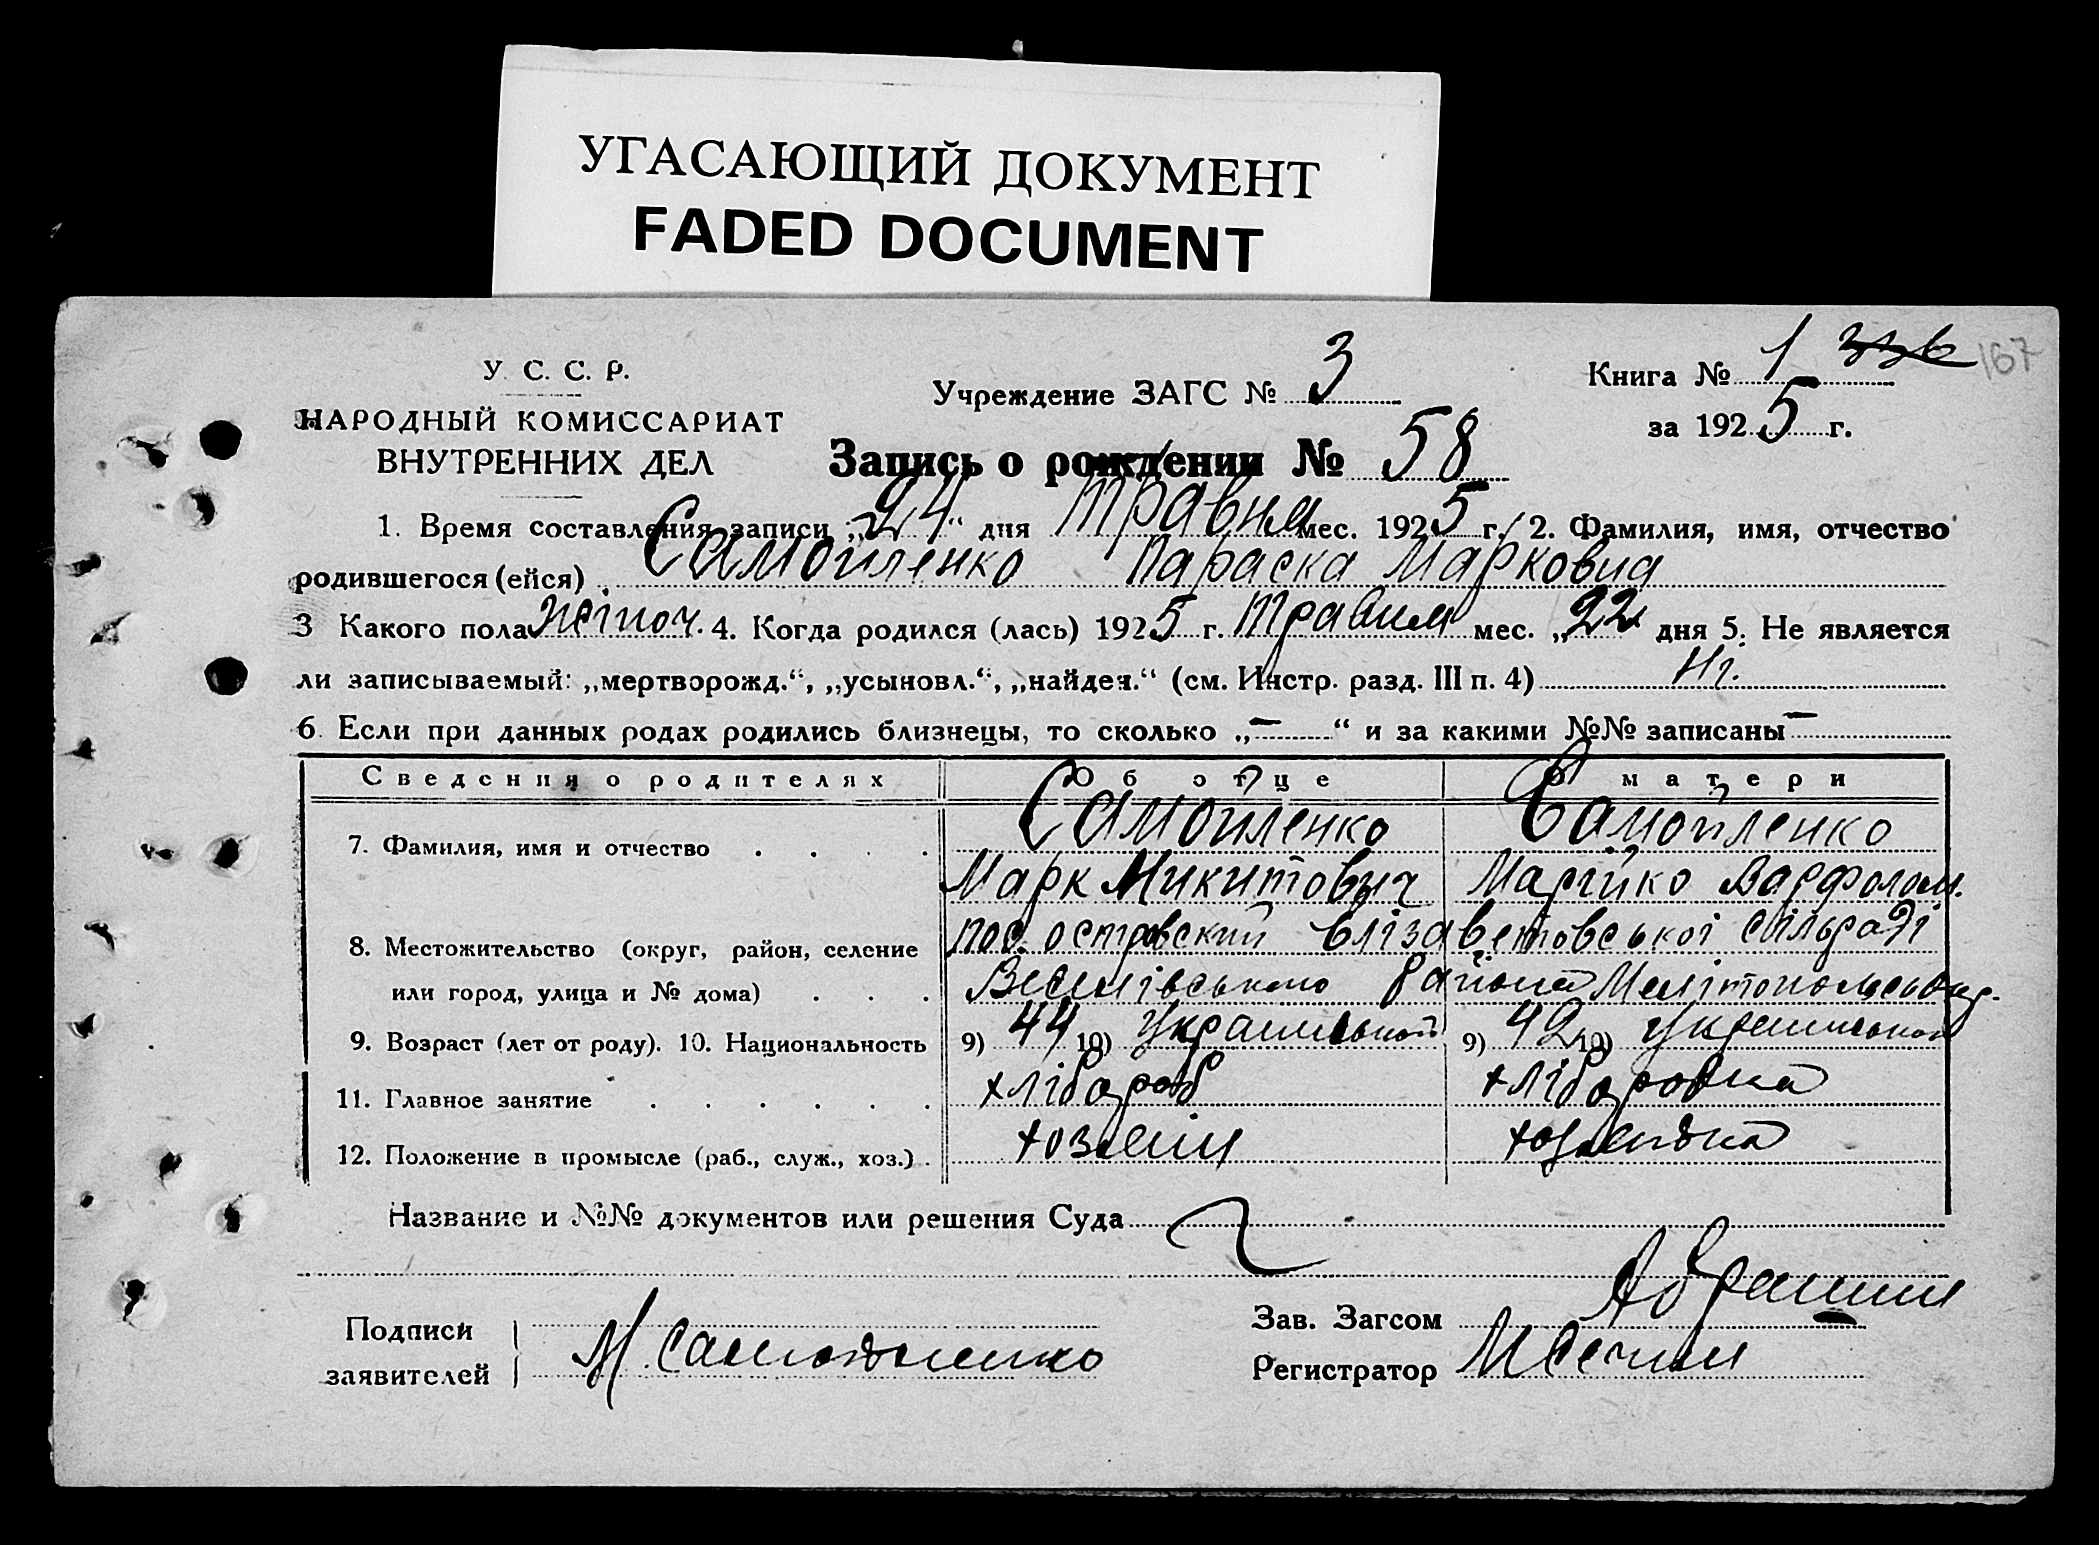 УГАСАЮЩИЙ ДОКУМЕНТ
FADED DOCUMENT
У. С. С. Р.
НАРОДНЫЙ КОМИССАРИАТ
ВНУТРЕННИХ ДЕЛ
Учреждение ЗАГС № 3
Книга № 1 336 167
за 1925 г.
Запись о рождении № 58
1. Время составления записи „24“ дня Травня мес. 1925 г. 2. Фамилия, имя, отчество
родившегося (ейся) Самойленко Параска Марковна
3 Какого пола жіноч. 4. Когда родился (лась) 1925 г. Травня мес. „22 дня 5. Не является
ли записываемый: „мертворожд.“, „усыновл.“, „найден.“ (см. Инстр. разд. III п. 4) Ні.
6. Если при данных родах родились близнецы, то сколько „—“ и за какими №№ записаны —
Сведения о родителях Об отце О матери
7. Фамилия, имя и отчество Самойленко Самойленко
Марк Микитович Марійко Варфолом.
8. Местожительство (округ, район, селение пос. островский Єлізаветовської сільраді
или город, улица и № дома) Веселівського району Мелітопольськ окр.
9. Возраст (лет от роду). 10. Национальность 9) 44 10) Українськой 9) 42 10) Українськой
11. Главное занятие хлібороб хліборобка
12. Положение в промысле (раб., служ., хоз.) хозяїн хозяйка
Название и №№ документов или решения Суда
Подписи
заявителей М. Самойленко
Зав. Загсом
Регистратор